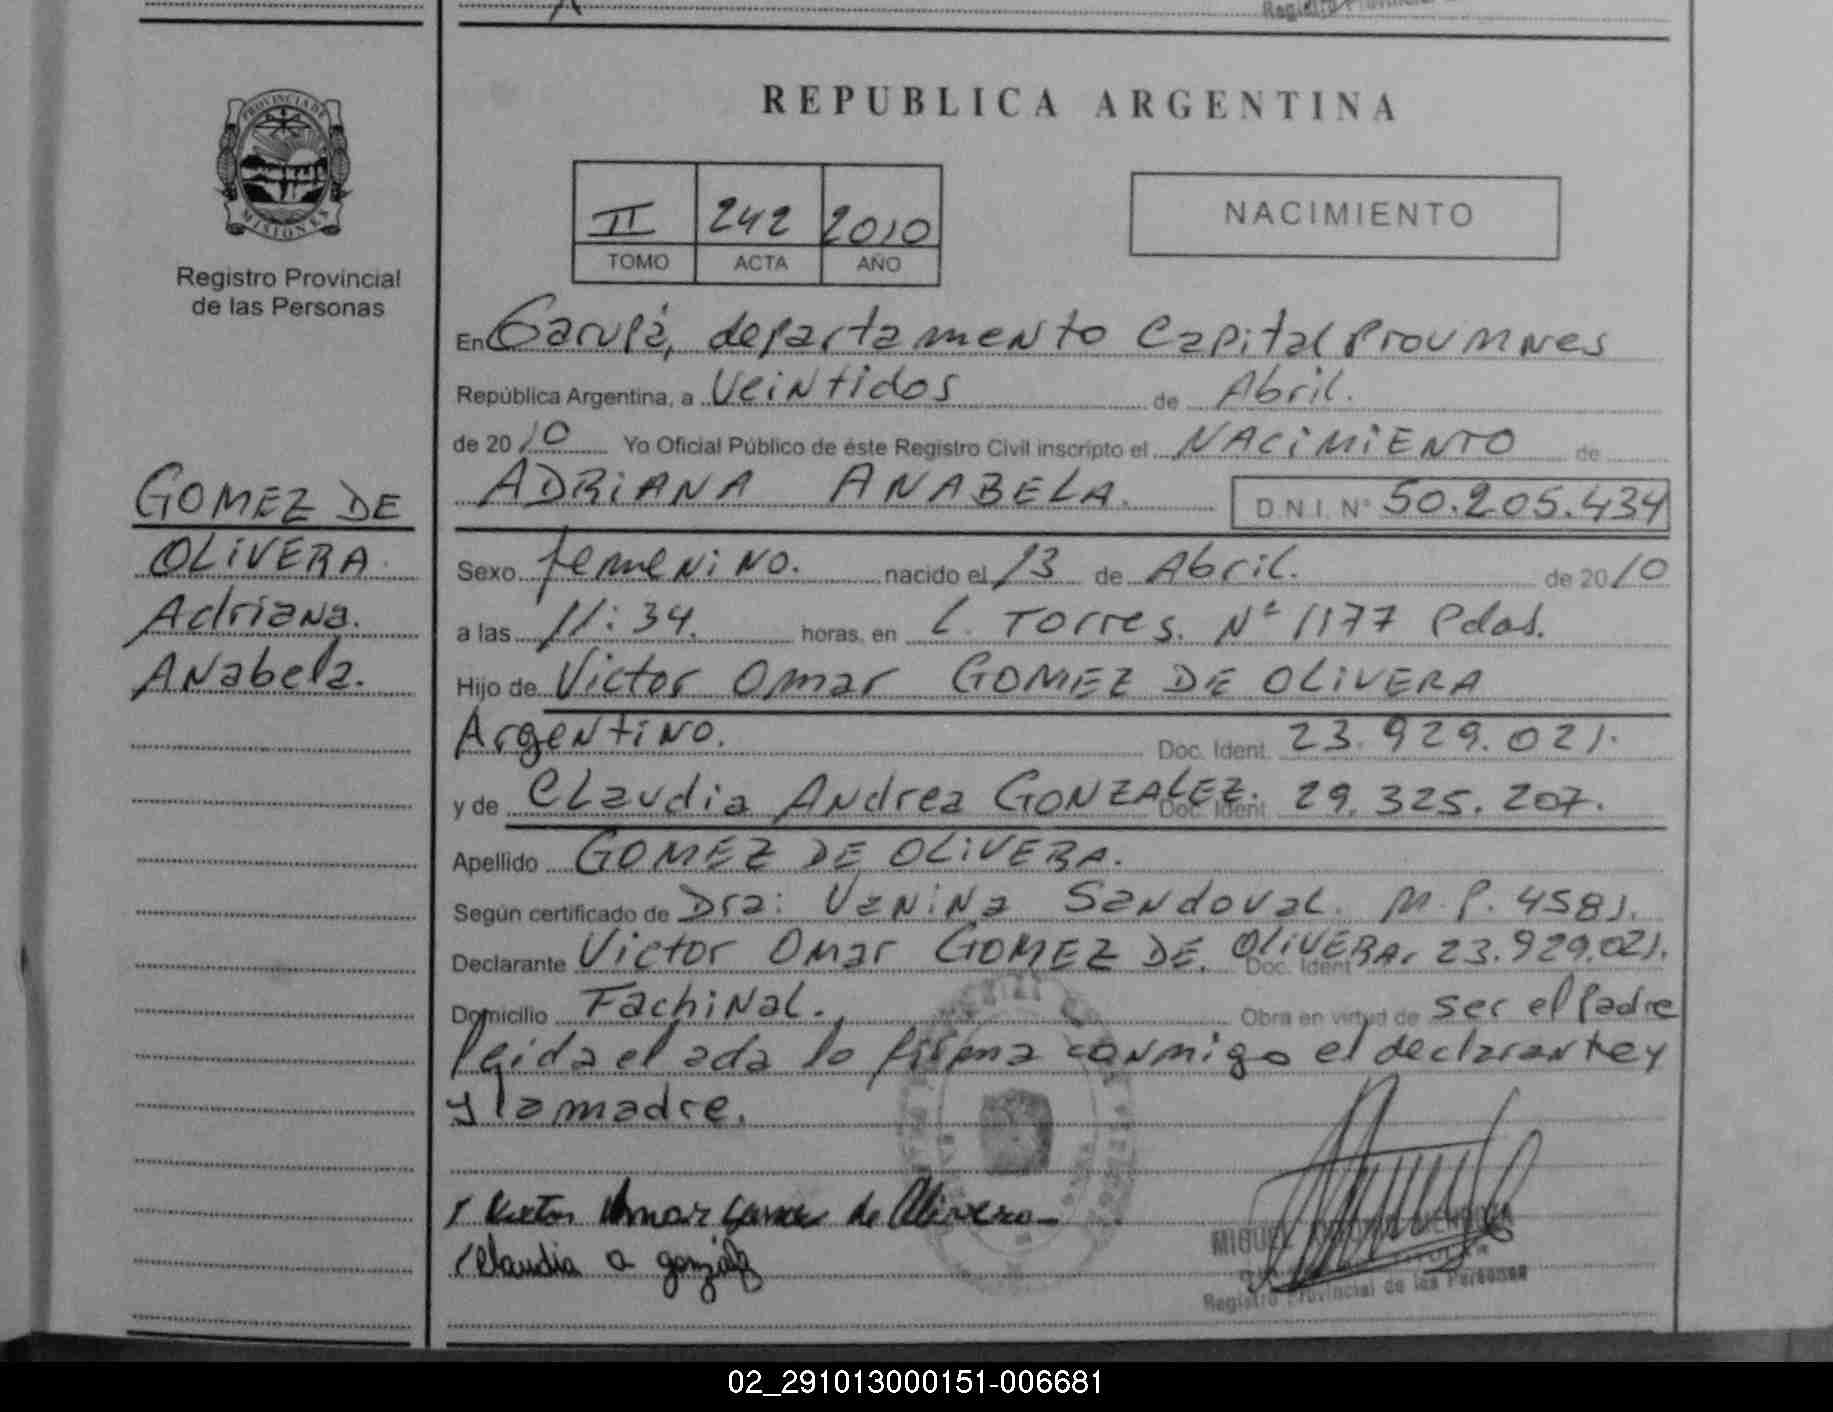 REPUBLICA ARGENTINA
PROVINCIA DE
MISIONES
Registro Provincial
de las Personas
II 242 2010
TOMO ACTA AÑO
NACIMIENTO
En Garupá, departamento Capital Prov Mnes
República Argentina, a Veintidos de Abril.
de 2010 Yo Oficial Público de éste Registro Civil inscripto el NACIMIENTO de
ADRIANA ANABELA. D.N.I. N° 50.205.434
GOMEZ DE
OLIVERA
Adriana.
Anabela.
Sexo femenino. nacido el 13 de Abril. de 2010
a las 11:34. horas, en L. Torres. N° 1177 Pdas.
Hijo de Victor Omar GOMEZ DE OLIVERA
Argentino. Doc. Ident. 23.929.021.
y de Claudia Andrea GONZALEZ. Doc. Ident. 29.325.207.
Apellido GOMEZ DE OLIVERA.
Según certificado de Dra: Vanina Sandoval. M.P. 4581.
Declarante Victor Omar GOMEZ DE OLIVERA. Doc. Ident 23.929.021.
Domicilio Fachinal. Obra en virtud de ser el Padre
leida el acta lo firma conmigo el declarante y
y la madre.
Victor Omar Gomez de Olivera
Claudia a gonzalez
MIGUEL
Registro Provincial de las Personas
02_291013000151-006681